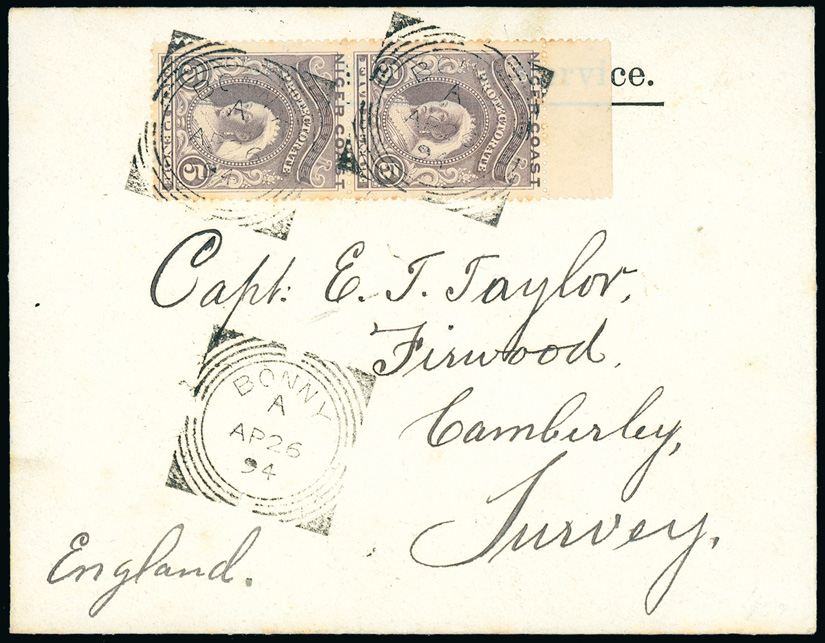 NIGER COAST
PROTECTORATE
5
5
NIGER COAST
PROTECTORATE
5
5
Service.
Capt: E. T. Taylor,
Firwood,
Camberley,
Survey,
England.
BONNY
A
AP 26
94